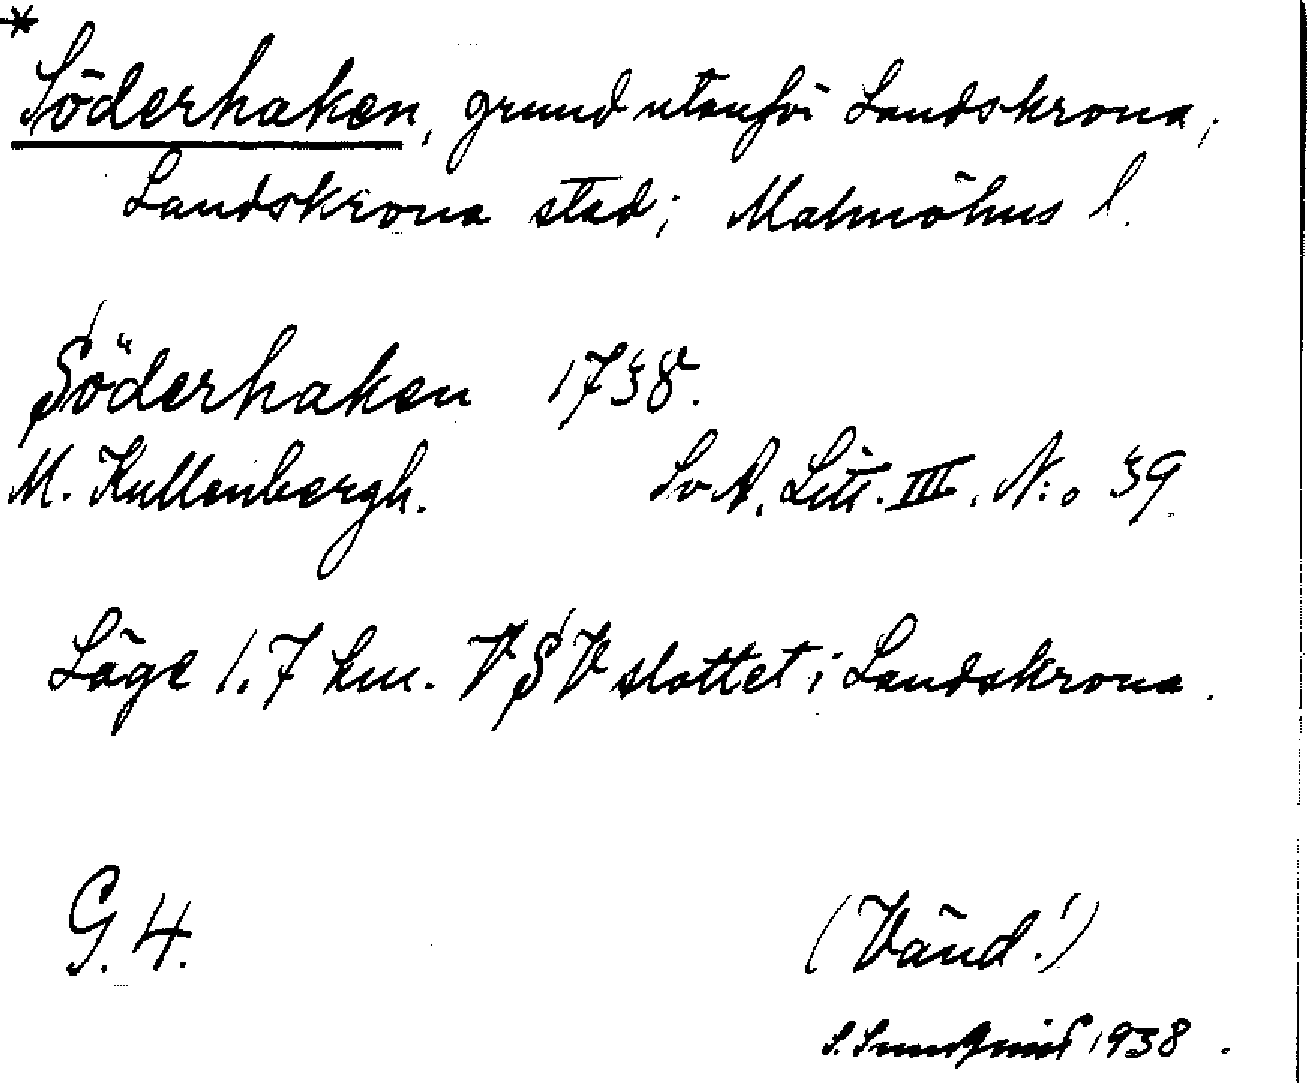 *
Söderhaken, grund utanför Landskrona,
Landskrona stad; Malmöhus l.
Söderhaken 1738.
M. Kullenbergh. SvA. Litt. III. N:o 39
Läge 1.7 km. VSV slottet i Landskrona.
G. 4. (Vänd!)
S. 1938.